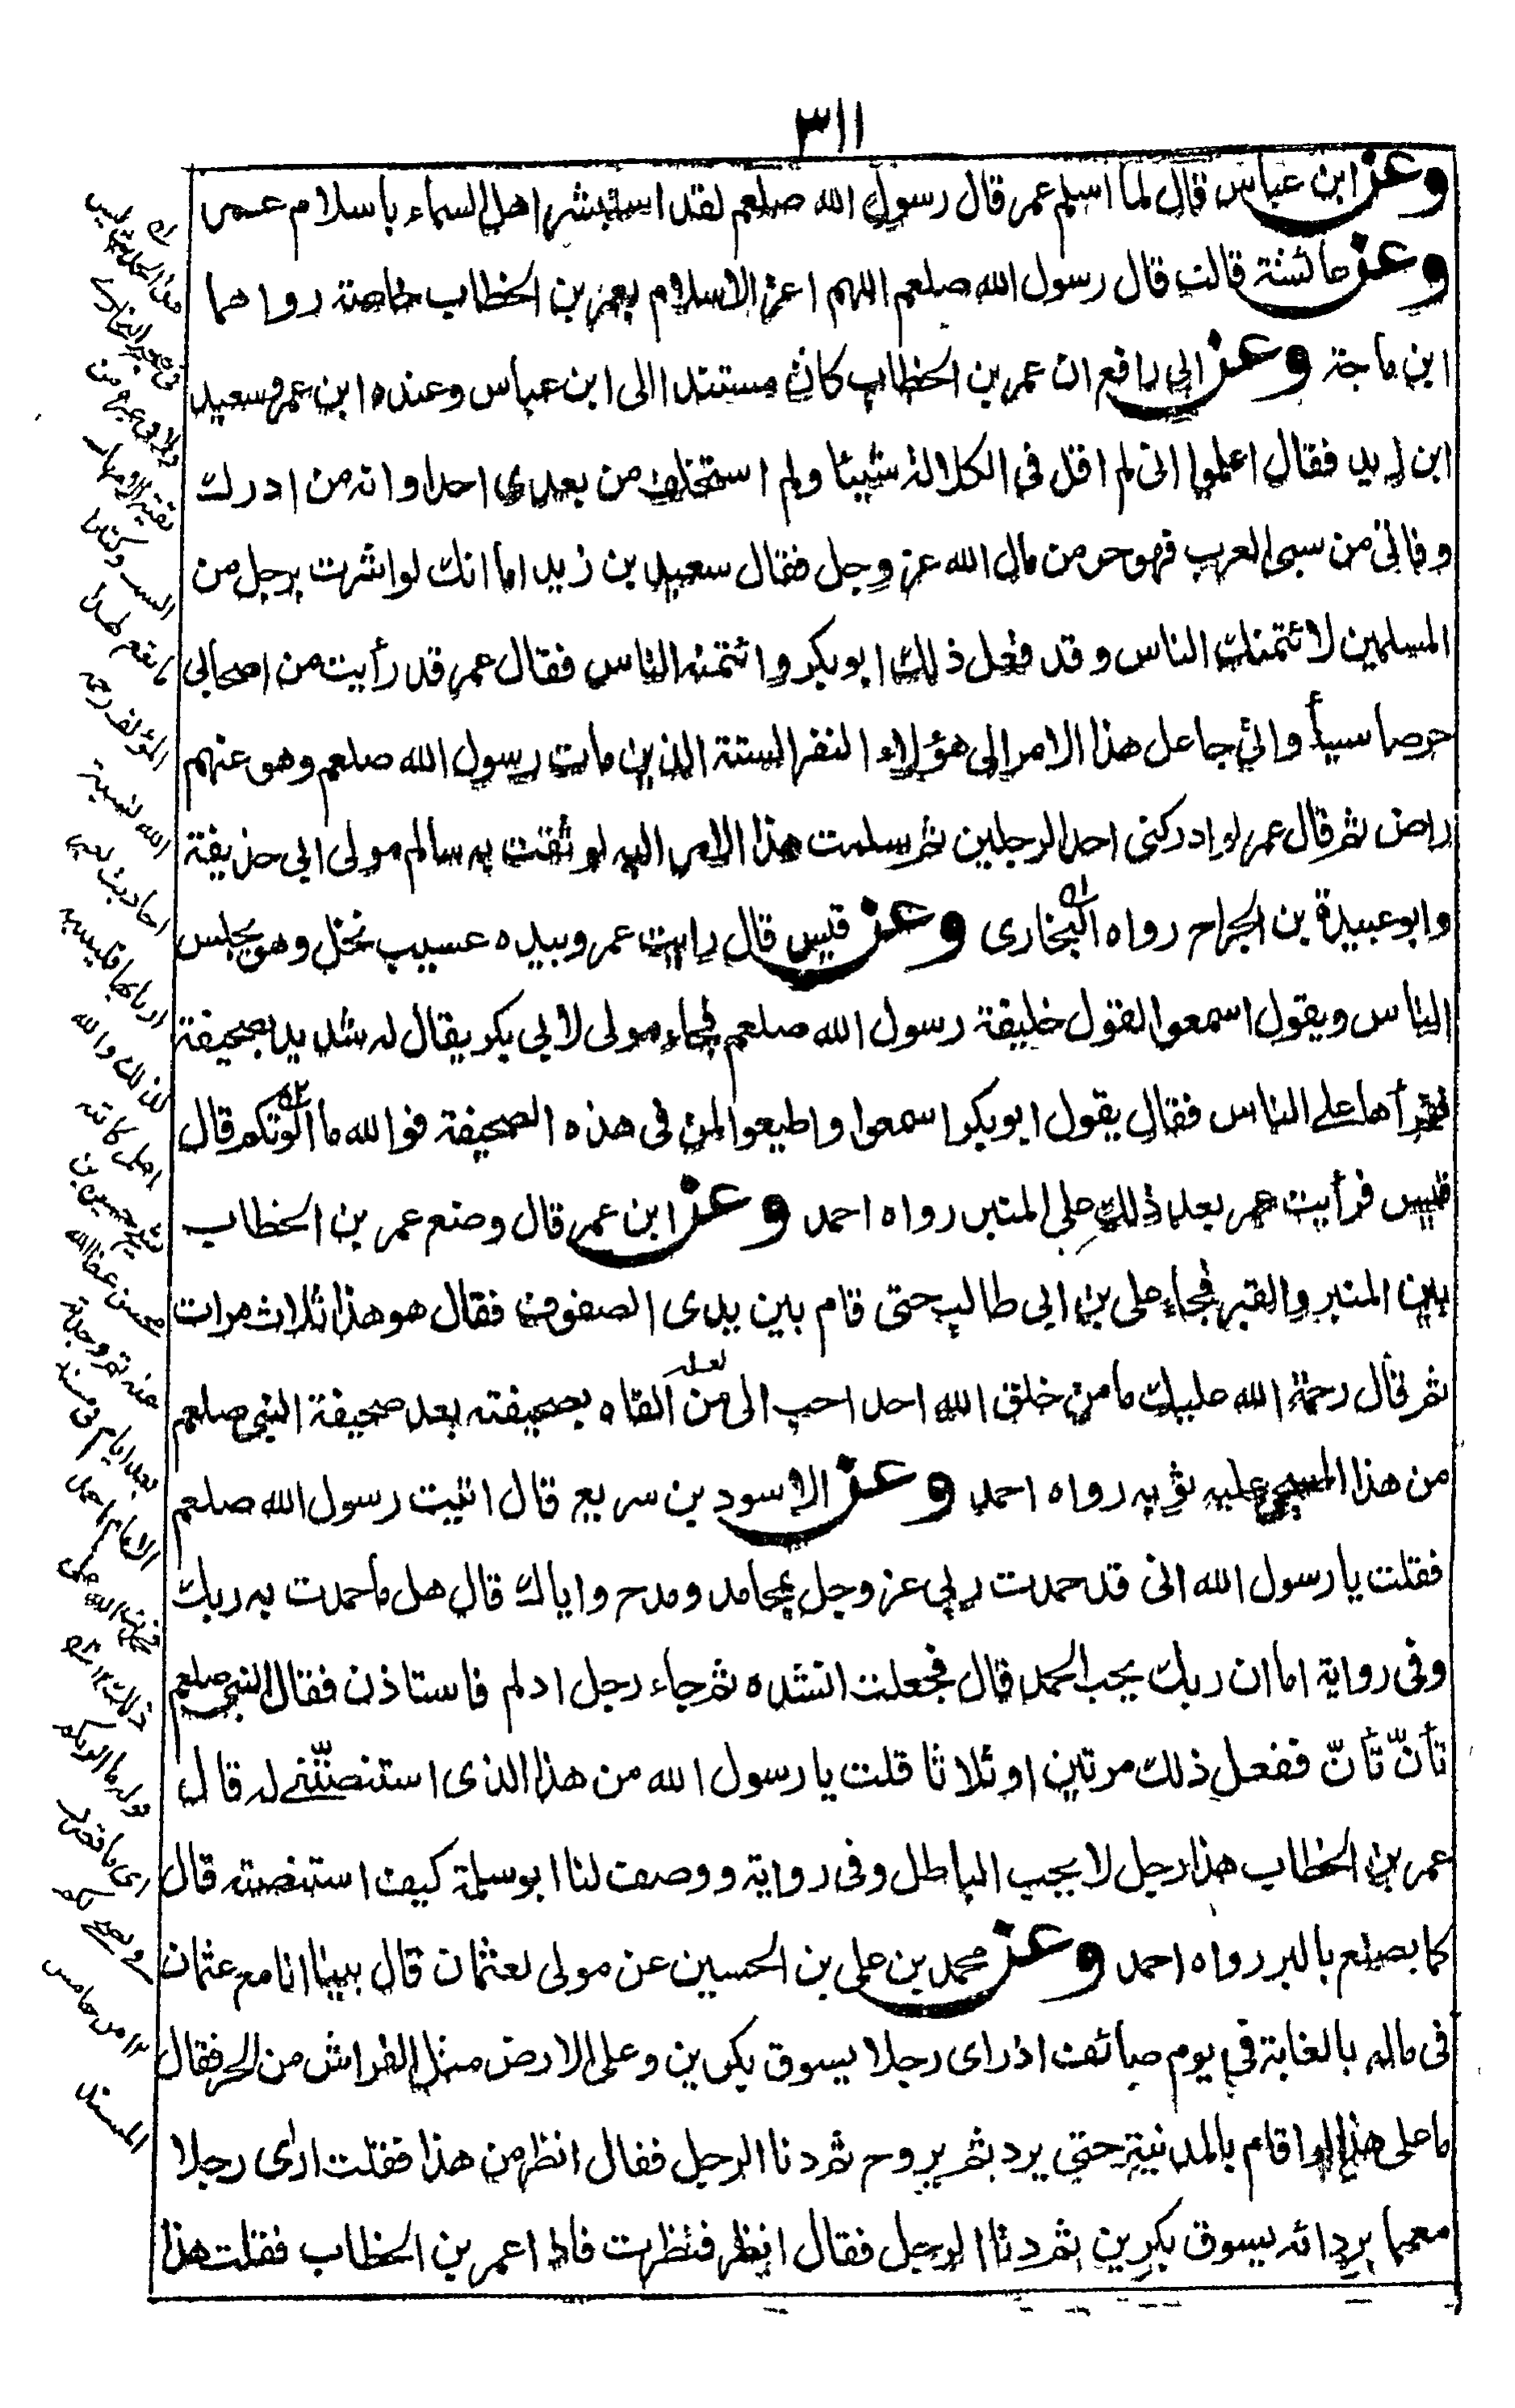 ٣١١
وعن ابن عباس قال لما اسلم عمر قال رسول الله صلعم لقد استبشر اهل السماء باسلام عمر
وعن عائشة قالت قال رسول الله صلعم اللهم اعز الاسلام بعمر بن الخطاب خاصة رواهما
ابن ماجة وعن ابي رافع ان عمر بن الخطاب كان مستندا الى ابن عباس وعنده ابن عمر وسعيد
ابن زيد فقال اعلموا انى لم اقل فى الكلالة شيئا ولم استخلف من بعدى احدا وانه من ادرك
وفاتى من سبى العرب فهو حر من مال الله عز وجل فقال سعيد بن زيد اما انك لو اشرت برجل من
المسلمين لائتمنك الناس وقد فعل ذلك ابو بكر وائتمنه الناس فقال عمر قد رأيت من اصحابى
حرصا سيأ وانى جاعل هذا الامر الى هؤلاء النفر الستة الذين مات رسول الله صلعم وهو عنهم
راض ثم قال عمر لو ادركنى احد الرجلين ثم سلمت هذا الامر اليه لوثقت به سالم مولى ابى حذيفة
وابو عبيدة بن الجراح رواه البخارى وعن قيس قال رايت عمر وبيده عسيب نخل وهو يجلس
الناس ويقول اسمعوا لقول خليفة رسول الله صلعم فجاء مولى لابى بكر يقال له شديد بصحيفة
فقرأها على الناس فقال يقول ابو بكر اسمعوا واطيعوا لمن فى هذه الصحيفة فوالله ما الوتكم قال
قيس فرأيت عمر بعد ذلك على المنبر رواه احمد وعن ابن عمر قال وضع عمر بن الخطاب
بين المنبر والقبر فجاء على بن ابى طالب حتى قام بين يدى الصفوف فقال هو هذا ثلاث مرات
ثم قال رحمة الله عليك ما من خلق الله احد احب الى من القاه بصحيفته بعد صحيفة النبى صلعم
من هذا المسجى عليه ثوبه رواه احمد وعن الاسود بن سريع قال اتيت رسول الله صلعم
فقلت يا رسول الله انى قد حمدت ربى عز وجل بمحامد ومدح واياك قال هل ما حمدت به ربك
وفى رواية اما ان ربك يحب الحمد قال فجعلت انشده ثم جاء رجل ادلم فاستاذن فقال النبى صلعم
تأنّ تأنّ ففعل ذلك مرتين او ثلاثا قلت يا رسول الله من هذا الذى استنصتّنى له قال
عمر بن الخطاب هذا رجل لا يحب الباطل وفى رواية ووصف لنا ابو سلمة كيف استنصته قال
كما يصنع بالهر رواه احمد وعن محمد بن على بن الحسين عن مولى لعثمان قال بينا انا مع عثمان
فى ماله بالغابة فى يوم صائف اذ راى رجلا يسوق بكرين وعلى الارض مثل الفراش من الحر فقال
ما على هذا لو اقام بالمدينة حتى يبرد ثم يروح ثم دنا الرجل فقال انظر من هذا فقلت ارى رجلا
معمما بردائه يسوق بكرين ثم دنا الرجل فقال انظر فنظرت فاذا عمر بن الخطاب فقلت هذا
لعله
هذا الحديث ليس
فى صحيح البخارى
المؤلف رح
الله نسبة
لذلك والله
بعد ايام فى مسند
الامام احمد
قوله ما الوتكم
المسند